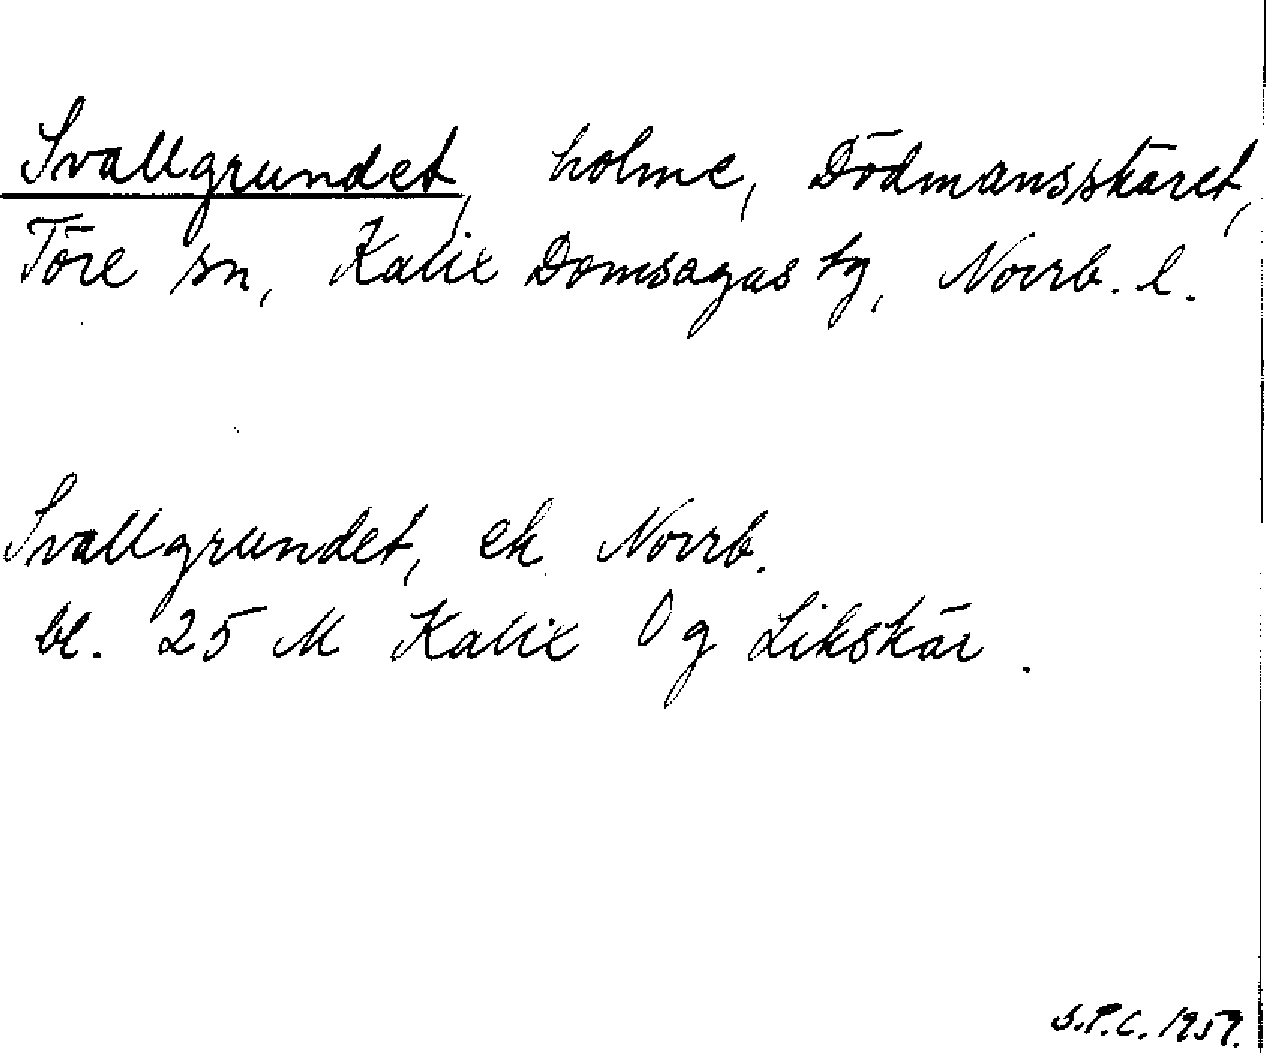 Svallgrundet, holme, Dödmansskäret,
Töre sn, Kalix Domsagas tg, Norrb. l.
Svallgrundet, ek Norrb.
bl. 25 M Kalix Og Likskär.
S.P.C. 1959.